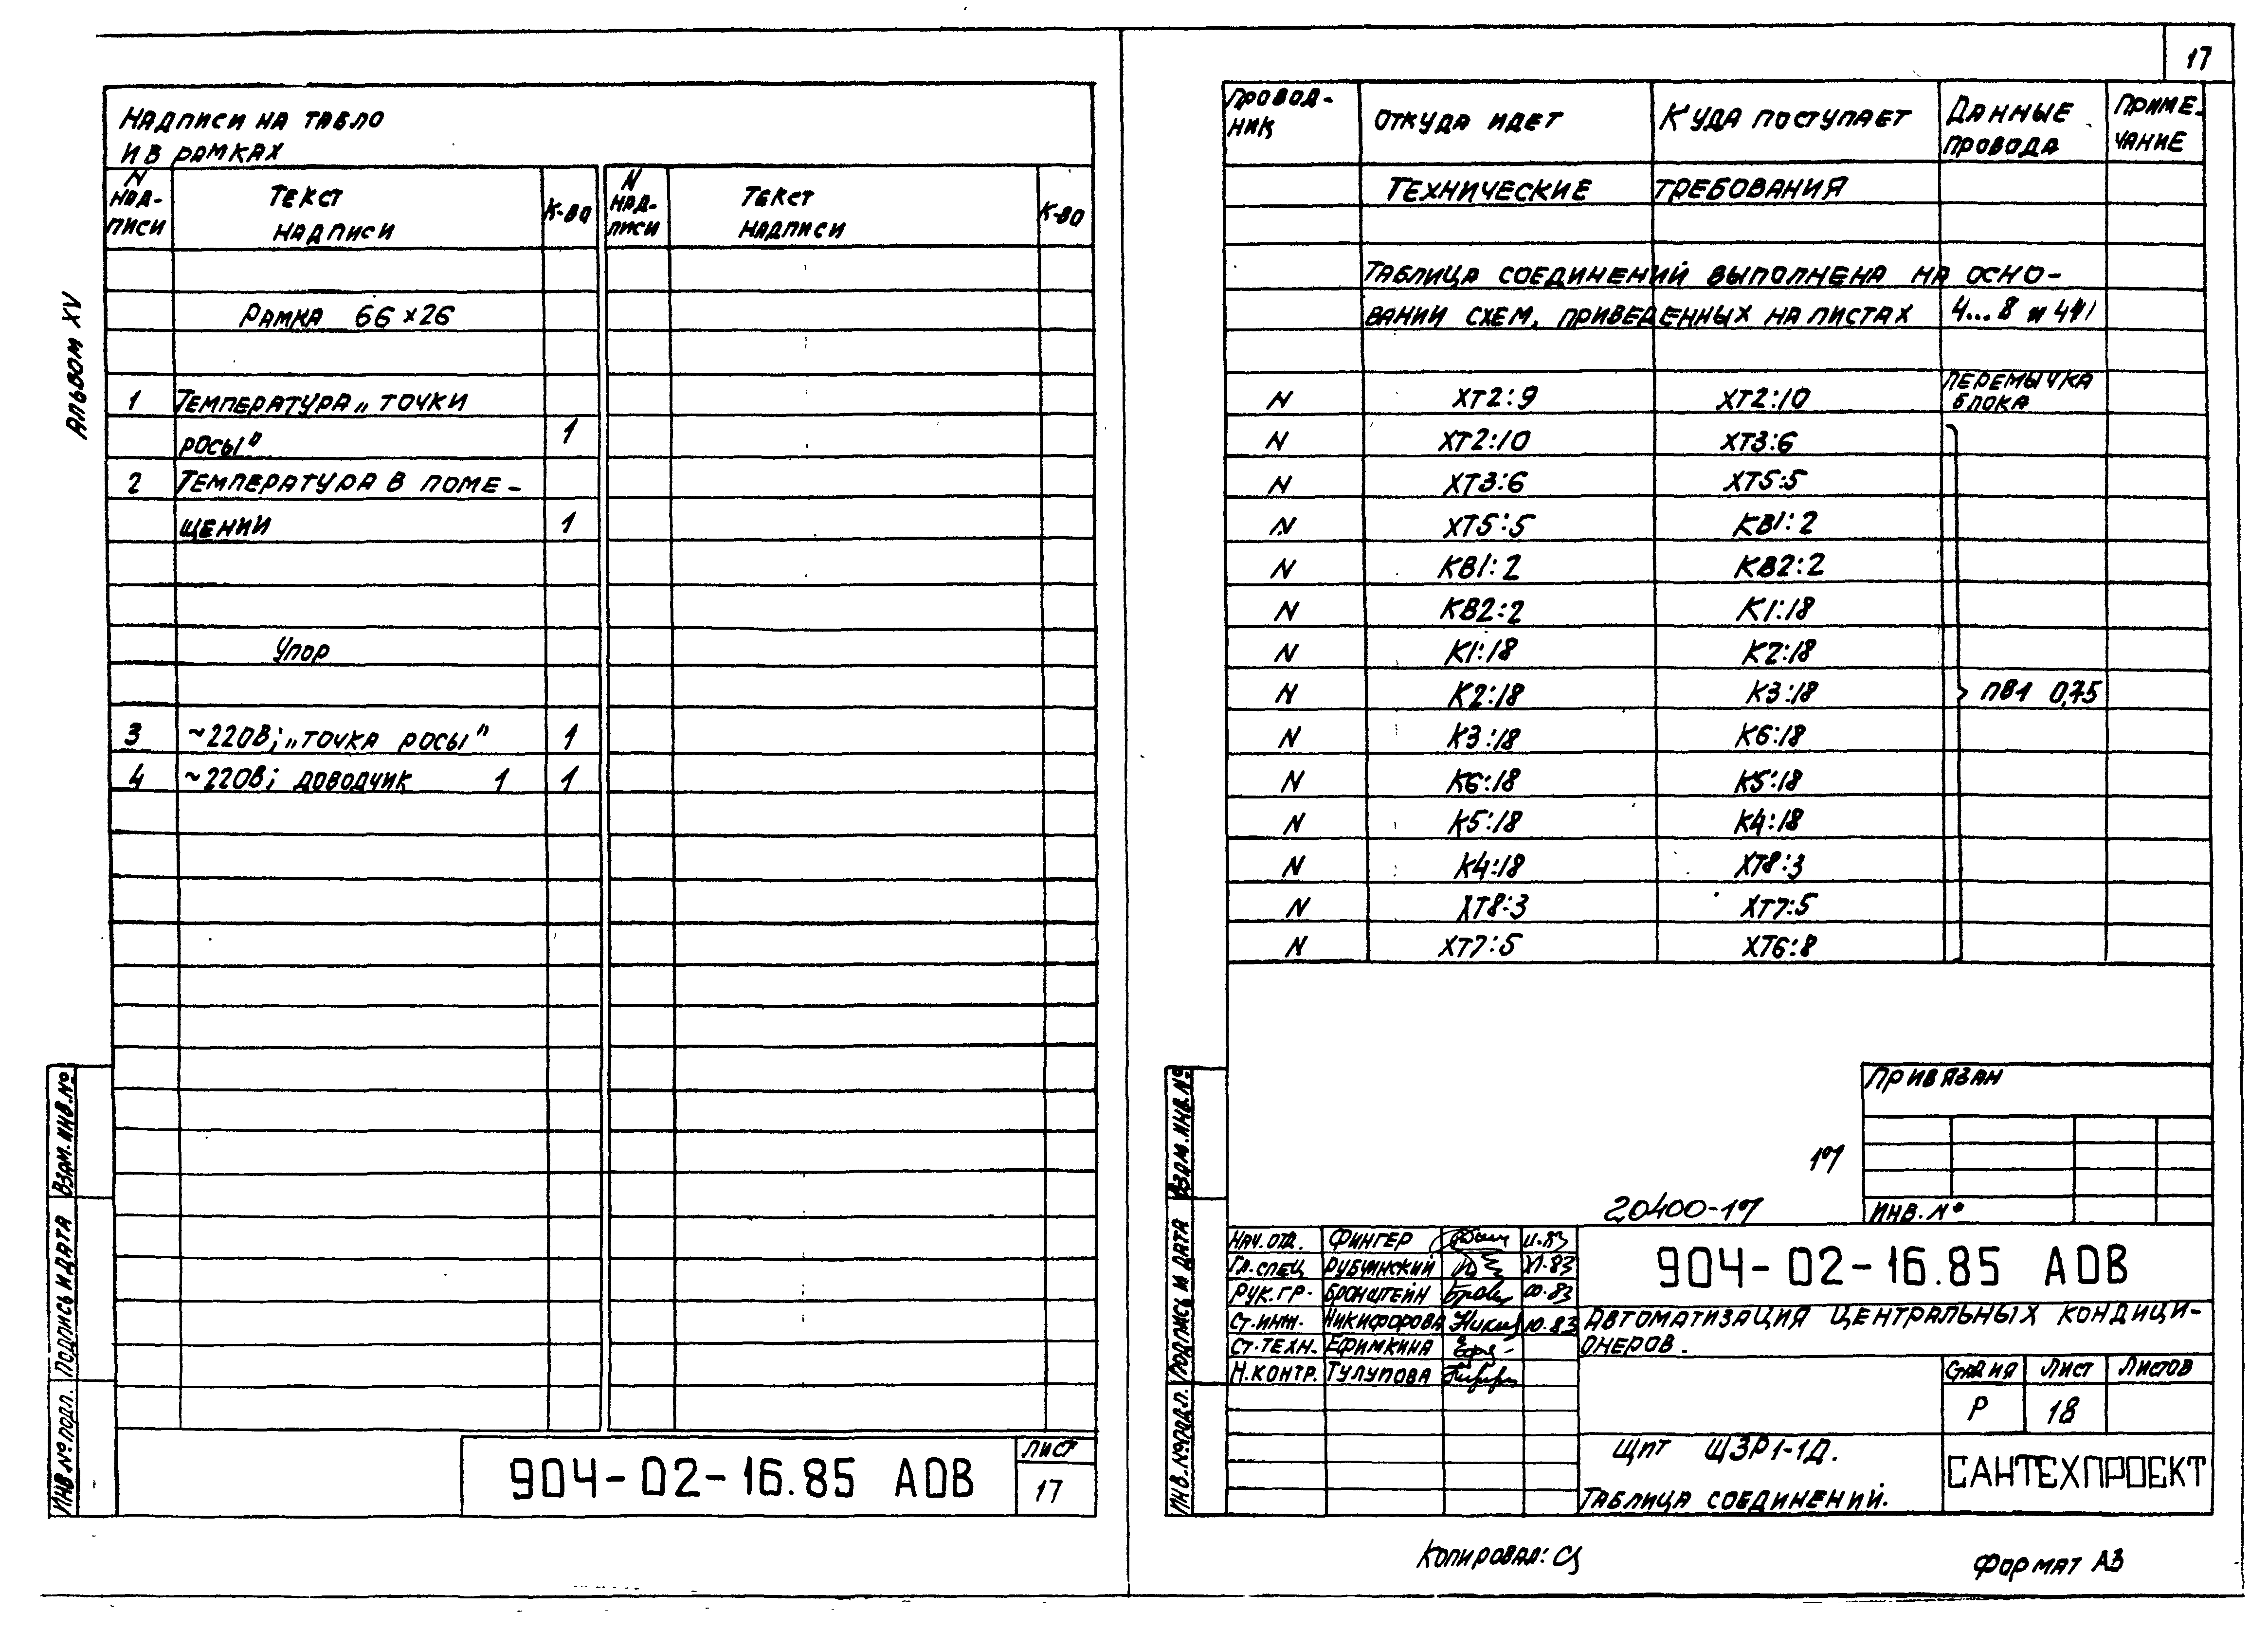 17
Альбом XV
Надписи на табло
и в рамках
N надписи Текст надписи К-во N надписи Текст надписи К-во
Рамка 66×26
1 Температура „точки
росы" 1
2 Температура в поме-
щении 1
Упор
3 ~220В; „точка росы" 1
4 ~220В; доводчик 1 1
904-02-16.85 АОВ
Лист
17
Инв № подл. Подпись и дата Взам. инв. №
Провод-
ник Откуда идет Куда поступает Данные
провода Приме-
чание
Технические требования
Таблица соединений выполнена на осно-
вании схем, приведенных на листах 4...8 и
N ХТ2:9 ХТ2:10 перемычка
блока
N ХТ2:10 ХТ3:6
N ХТ3:6 ХТ5:5
N ХТ5:5 КВ1:2
N КВ1:2 КВ2:2
N КВ2:2 К1:18
N К1:18 К2:18
N К2:18 К3:18 ПВ1 0,75
N К3:18 К6:18
N К6:18 К5:18
N К5:18 К4:18
N К4:18 ХТ8:3
N ХТ8:3 ХТ7:5
N ХТ7:5 ХТ6:8
Привязан
17
Инв. №
20400-17
Инв. № подл. Подпись и дата Взам. инв. №
Нач. отд. Фингер 11.83
Гл. спец Рубчинский XI.83
Рук. гр. Бронштейн
Ст. инж. Никифорова 10.83
Ст. техн. Ефимкина
Н. контр. Тулупова
904-02-16.85 АОВ
Автоматизация центральных кондици-
онеров.
Стадия Лист Листов
Р 18
Щит ЩЗР1-1Д.
Таблица соединений.
САНТЕХПРОЕКТ
Копировал:
Формат А3